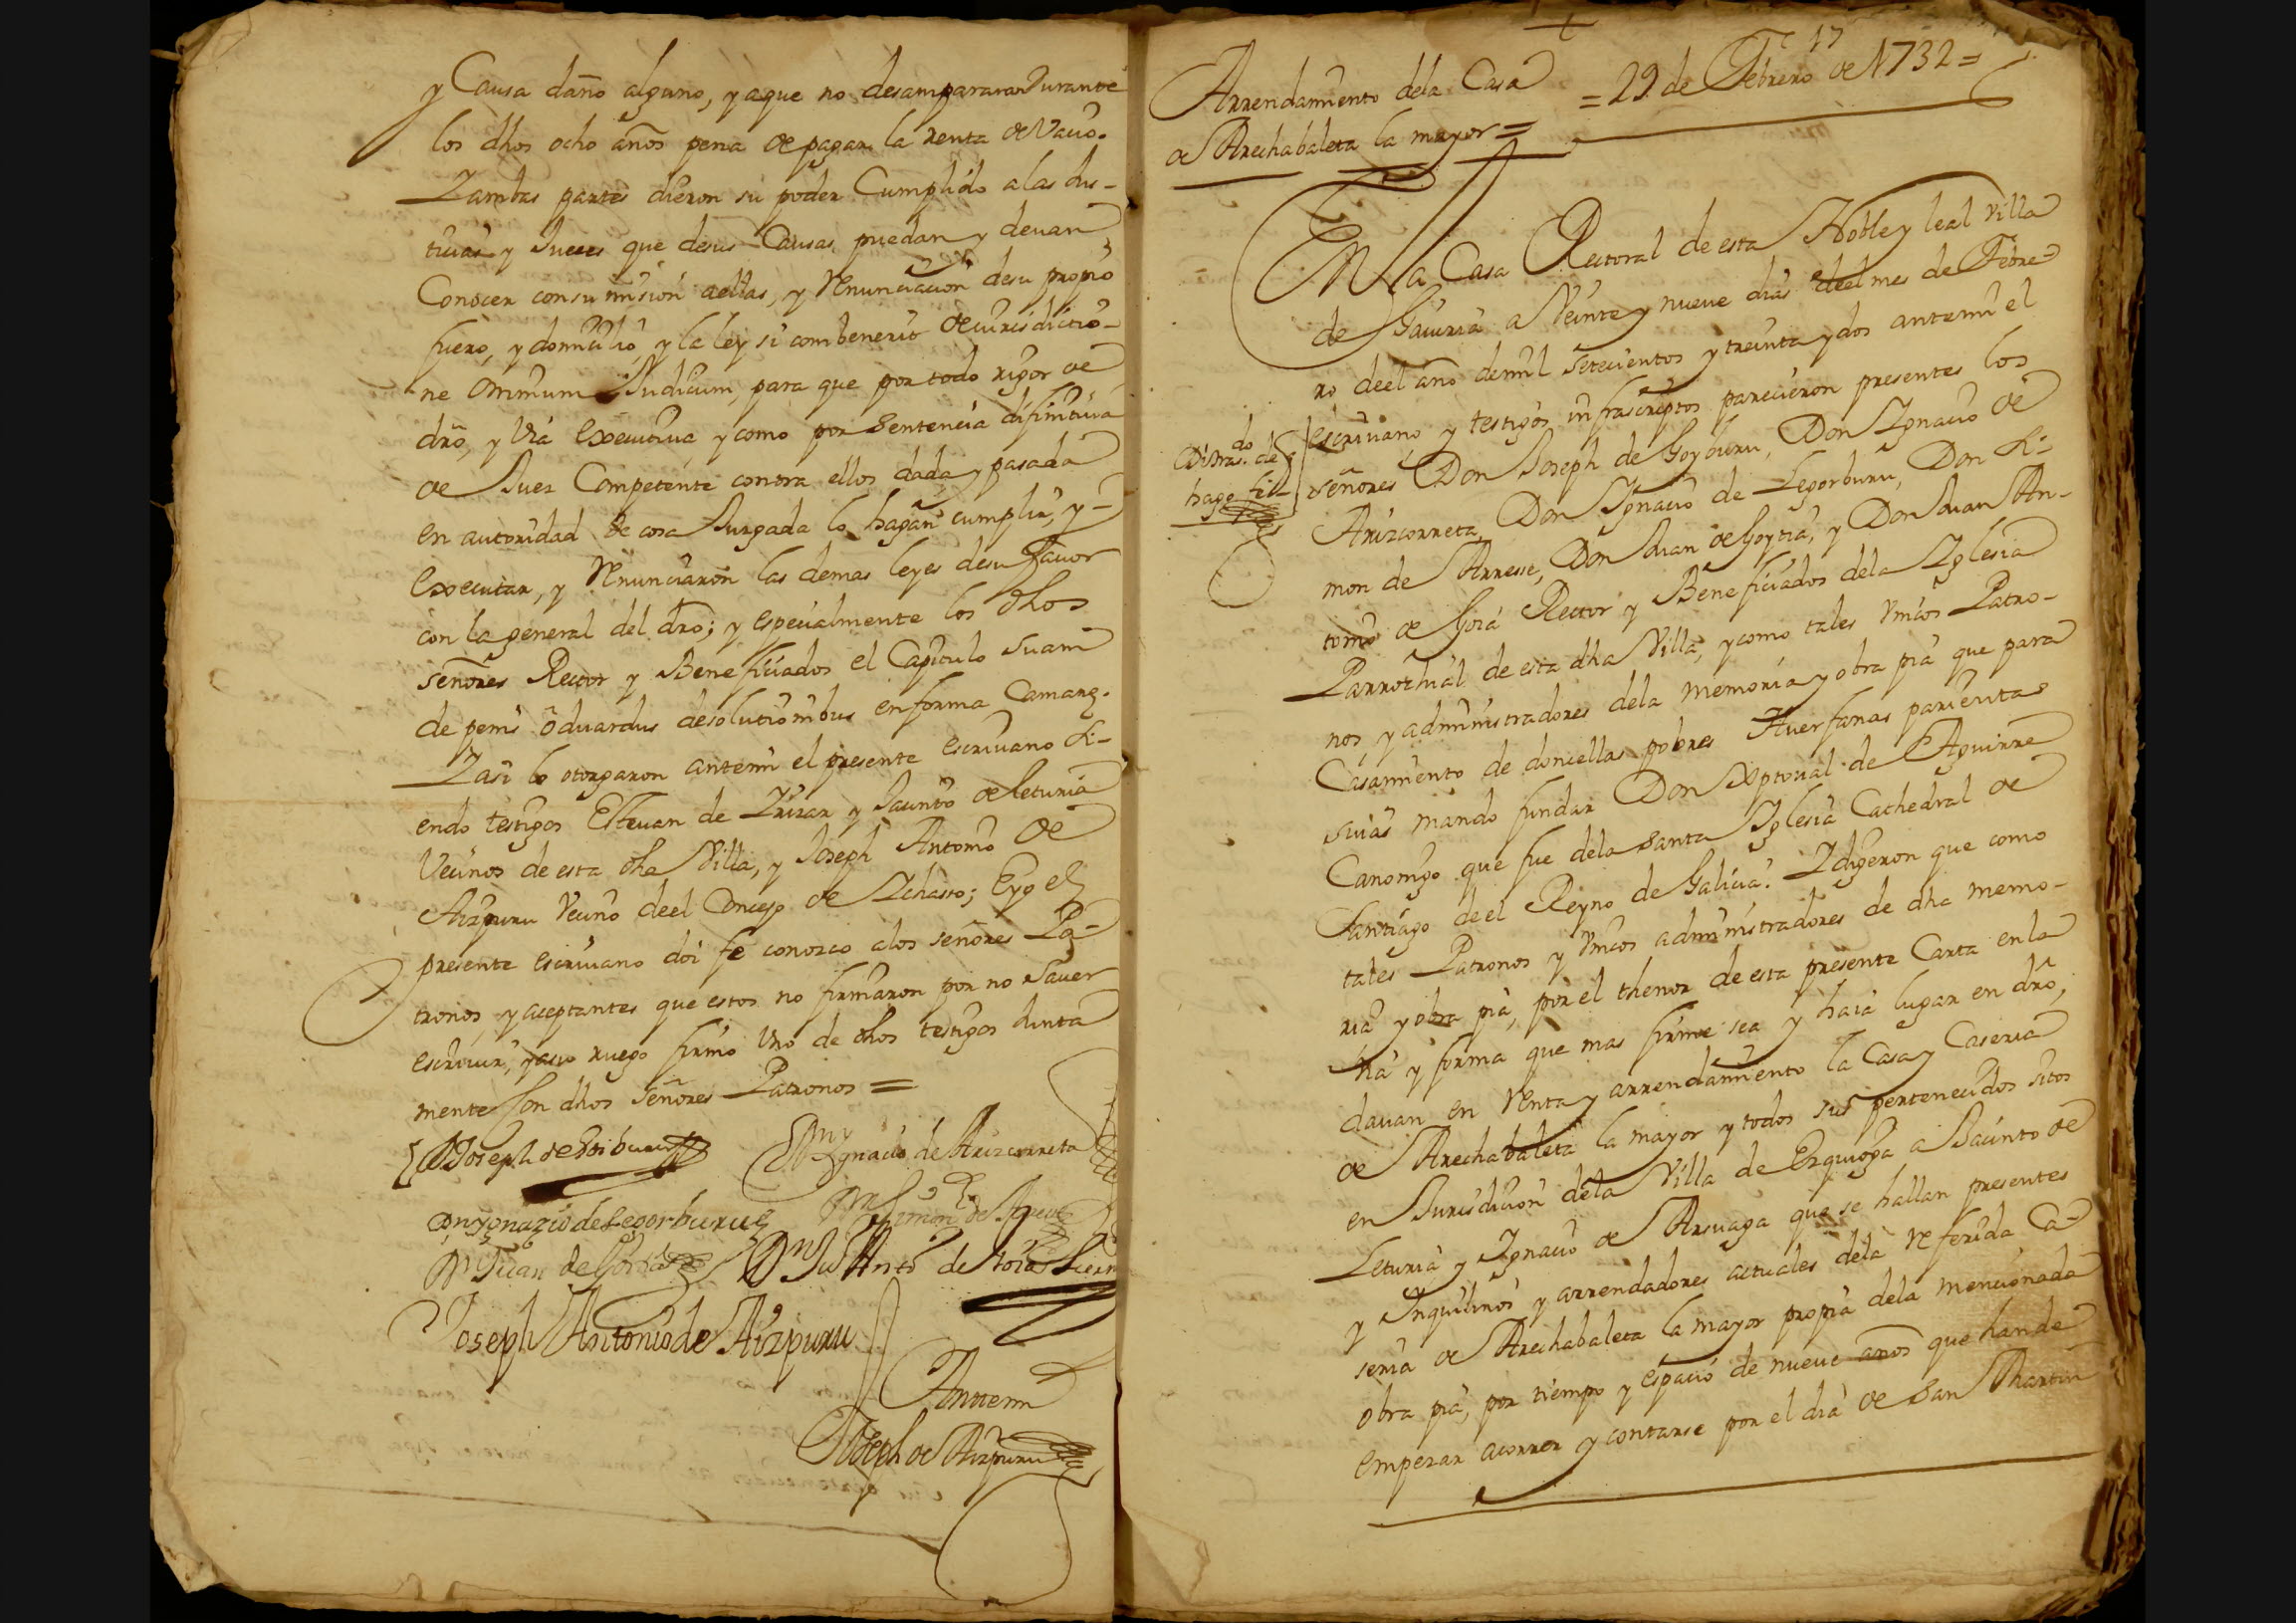 y Causa daño alguno, y a que no desampararan durante
los dhos ocho años pena de pagar la renta de Vacio.
Y ambas partes dieron su poder Cumplido a las Jus-
ticias y Jueces que de sus Causas puedan y devan
Conocer con sumision a ellas, y renunciacion de su propio
fuero, y domicilio, y la ley si combenerit de iurisdictio-
ne omnium Judicum, para que por todo rigor de
dro, y via executiva, y como por sentencia difinitiva
de Juez Competente contra ellos dada y pasada
en autoridad de cosa Juzgada lo hagan cumplir, y
executar, y renunciaron las demas leyes de su favor
con la general del dro; y especialmente los dhos
señores Rector y Beneficiados el Capitulo suam
de penis oduardus desolutionibus en forma Camarę.
Y asi lo otorgaron antemi el presente escrivano si-
endo testigos Estevan de Yrizar y Jacinto de Leturia
Vecinos de esta dha Villa, y Joseph Antonio de
Aizpuru Vecino de el Concejo de Ychaso; E yo el
presente escrivano doi fe conozco a los señores Pa-
tronos, y aceptantes que estos no firmaron por no saver
escrivir, y a su ruego firmo uno de dhos testigos Junta
mente con dhos señores Patronos =
Dn Joseph de Goiburu
Dn Ygnacio de Arizcorreta
Dn ygnazio de Legorburu
Dn Simon de Arrese
Dn Juan de Goitia
Dn Ju Anto de Goia
Joseph Antonio de Aizpuru
Antemi
Joseph de Aizpuru
17
Arrendamiento dela Casa
de Arechabaleta la mayor =
= 29 de Febrero de 1732 =
EN la Casa Rectoral de esta Noble y leal villa
de Gaviria a Veinte y nueve dias de el mes de Febre-
ro de el año de mil setecientos y treinta y dos antemi el
escrivano y testigos infrascriptos parecieron presentes los
señores Don Joseph de Goyburu, Don Ygnacio de
Arizcorreta, Don Ygnacio de Legorburu, Don Si-
mon de Arrese, Don Juan de Goytia, y Don Juan An-
tonio de Goia Rector y Beneficiados dela Yglesia
Parrochial de esta dha Villa, y como tales Vnicos Patro-
nos, y administradores dela memoria y obra pia que para
Casamiento de doncellas pobres Huerfanas parientas
suias mando fundar Don Xptoval de Aguirre
Canonigo que fue dela santa Yglesia Cathedral de
Santiago de el Reyno de Galicia. Y digeron que como
tales Patronos y Vnicos administradores de dha memo-
ria y obra pia, por el thenor de esta presente Carta en la
via y forma que mas firme sea y haia lugar en dro,
davan en renta y arrendamiento la Casa y Caseria
de Arechabaleta la mayor y todos sus pertenecidos sitos
en Jurisdicion dela Villa de Ezquioga a Jacinto de
Leturia y Ygnacio de Arsuaga que se hallan presentes
y Ynquilinos y arrendadores actuales dela referida Ca-
seria de Arechabaleta la mayor propia dela mencionada
obra pia, por tiempo y espacio de nueve años que han de
empezar a correr y contarse por el dia de San Martin